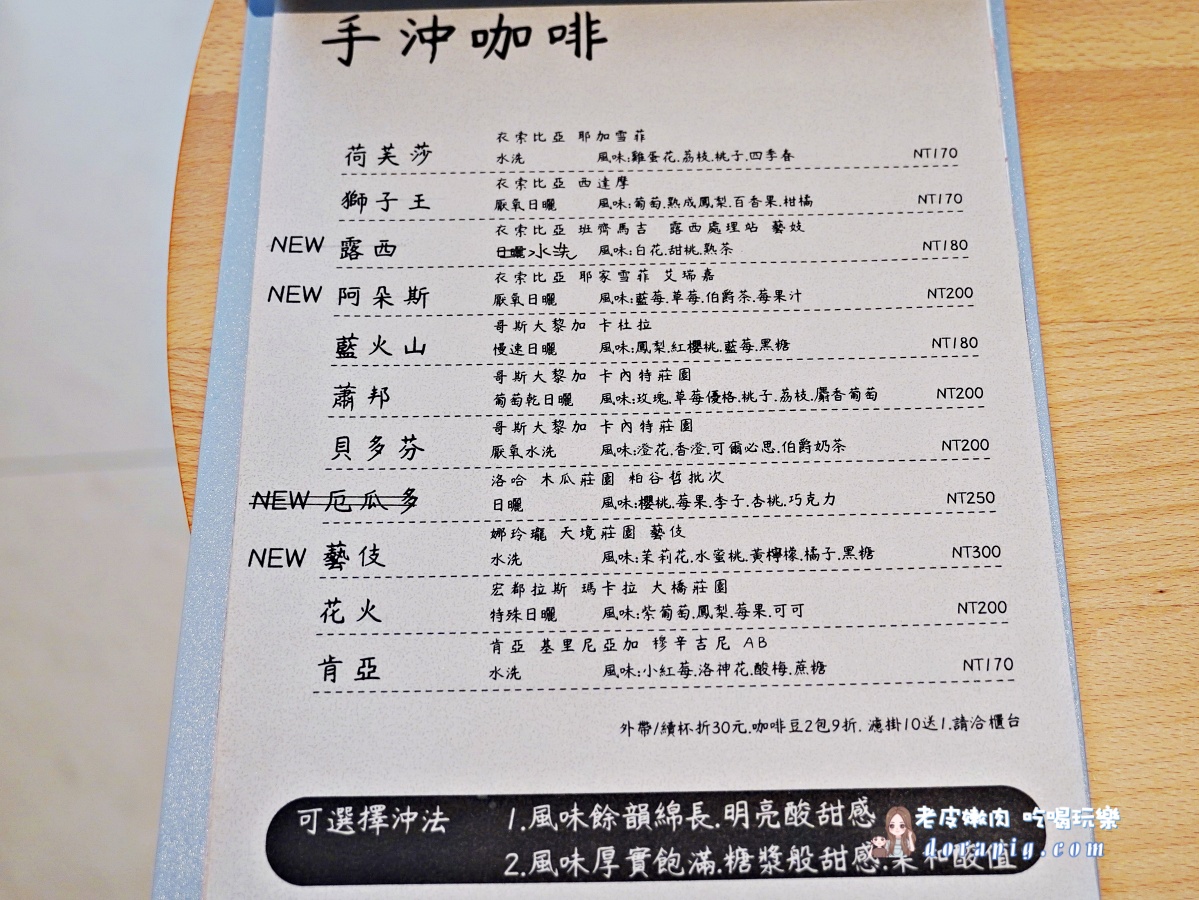 手沖咖啡
衣索比亞 耶加雪菲
荷芙莎 水洗 風味:雞蛋花.荔枝.桃子.四季春 NT170
衣索比亞 西達摩
獅子王 厭氧日曬 風味:葡萄.熟成鳳梨.百香果.柑橘 NT170
衣索比亞 班齊馬吉 露西處理站 藝妓
NEW 露西 日曬>水洗 風味:白花.甜桃.熟茶 NT180
衣索比亞 耶家雪菲 艾瑞嘉
NEW 阿朵斯 厭氧日曬 風味:藍莓.草莓.伯爵茶.莓果汁 NT200
哥斯大黎加 卡杜拉
藍火山 慢速日曬 風味:鳳梨.紅櫻桃.藍莓.黑糖 NT180
哥斯大黎加 卡內特莊園
蕭邦 葡萄乾日曬 風味:玫瑰.草莓優格.桃子.荔枝.麝香葡萄 NT200
哥斯大黎加 卡內特莊園
貝多芬 厭氧水洗 風味:澄花.香澄.可爾必思.伯爵奶茶 NT200
洛哈 木瓜莊園 柏谷哲批次
NEW 厄瓜多 日曬 風味:櫻桃.莓果.李子.杏桃.巧克力 NT250
娜玲瓏 天境莊園 藝伎
NEW 藝伎 水洗 風味:茉莉花.水蜜桃.黃檸檬.橘子.黑糖 NT300
宏都拉斯 瑪卡拉 大橋莊園
花火 特殊日曬 風味:紫葡萄.鳳梨.莓果.可可 NT200
肯亞 基里尼亞加 穆辛吉尼 AB
肯亞 水洗 風味:小紅莓.洛神花.酸梅.蔗糖 NT170
外帶/續杯折30元.咖啡豆2包9折. 濾掛10送1.請洽櫃台
可選擇沖法 1.風味餘韻綿長.明亮酸甜感
2.風味厚實飽滿.糖漿般甜感.柔和酸值
老皮嫩肉 吃喝玩樂
dorapig.com